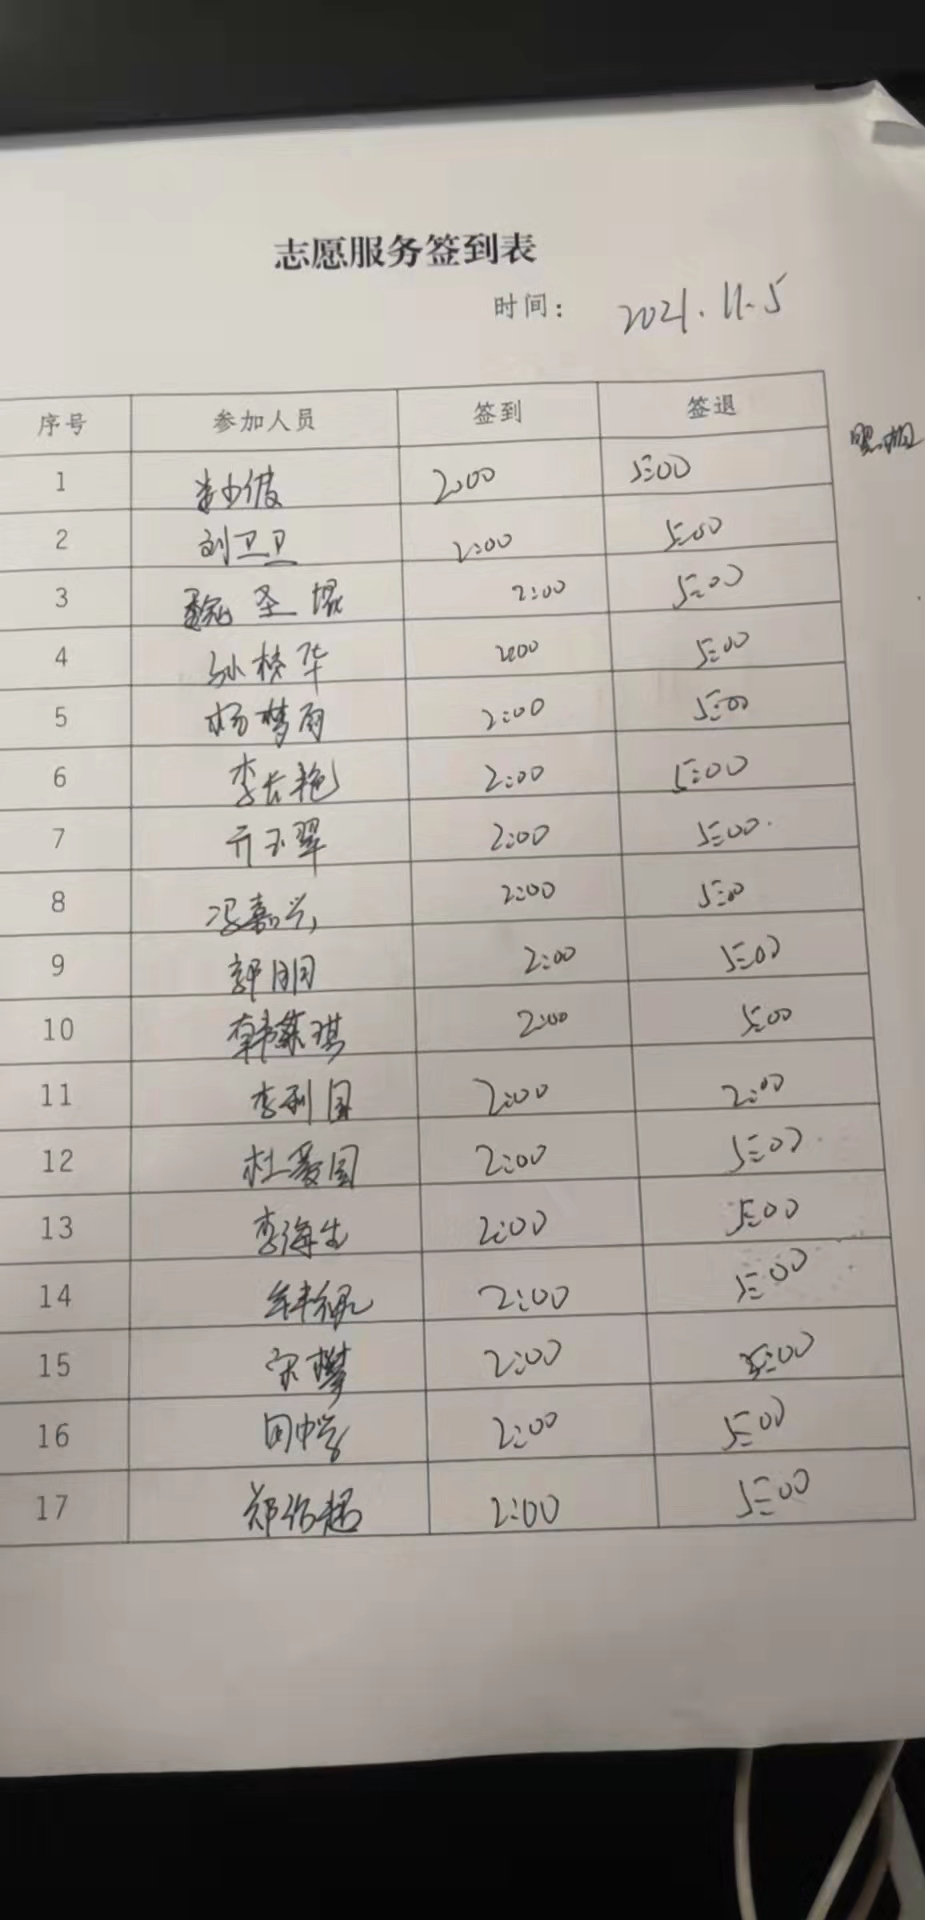 志愿服务签到表
时间： 2021.11.5
序号 参加人员 签到 签退
1 2:00 5:00
2 刘卫卫 2:00 5:00
3 魏圣 2:00 5:00
4 孙桂华 2:00 5:00
5 杨梦雨 2:00 5:00
6 李长艳 2:00 5:00
7 亓玉翠 2:00 5:00
8 冯嘉兴 2:00 5:00
9 郭朋 2:00 5:00
10 韩琪 2:00 5:00
11 李利国 2:00 2:00
12 杜爱国 2:00 5:00
13 李海生 2:00 5:00
14 2:00 5:00
15 宋攀 2:00 5:00
16 田中学 2:00 5:00
17 郑超 2:00 5:00